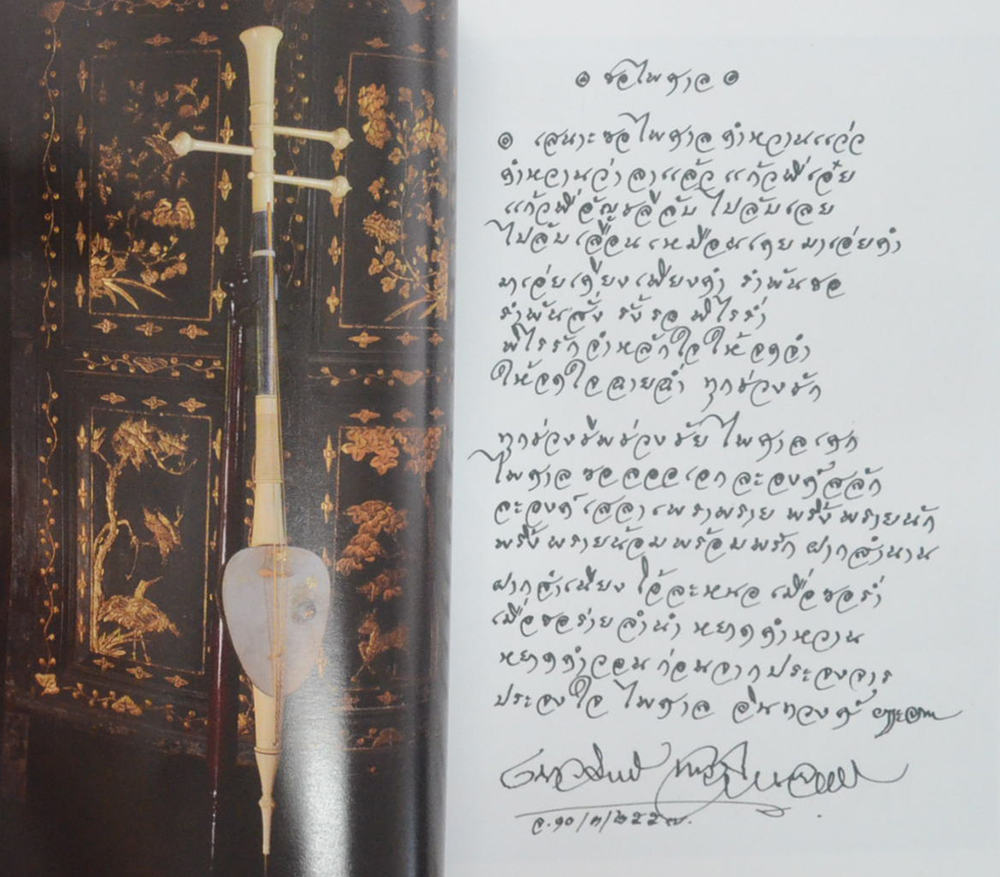 ๏ ซอไพศาล ๏
๏ เสนาะซอไพศาลคำหวานแว่ว
คำหวานว่าลาแล้ว แก้วพี่เอ๋ย
แก้วพี่อัญชลีลับ ไปลับเลย
ไปลับเลื่อนเหมือนเคย มาเอ่ยคำ
มาเอ่ยเคียงเพียงคำ รำพันซอ
รำพันสั่ง รั้งรอ พิไรร่ำ
พิไรรักจำหลักใจให้จดจำ
ให้จดใจฉายฉ่ำ ทุกช่วงชัก
ทุกช่วงชีพช่วงชัย ไพศาลเศก
ไพศาล ซอ ออเอก ละองค์สลัก
ละองค์เสลาเพราพราย พริ้งพรายนัก
พริ้งพรายน้อมพร้อมพรัก ฝากสำนาน
ฝากสำเนียง ไว้ละหนอ เมื่อซอร่ำ
เมื่อซอร่ายลำนำ หยาดคำหวาน
หยาดคำวอน ก่อนจากประจงจาร
ประจงใจ ไพศาล อินทวงศ์